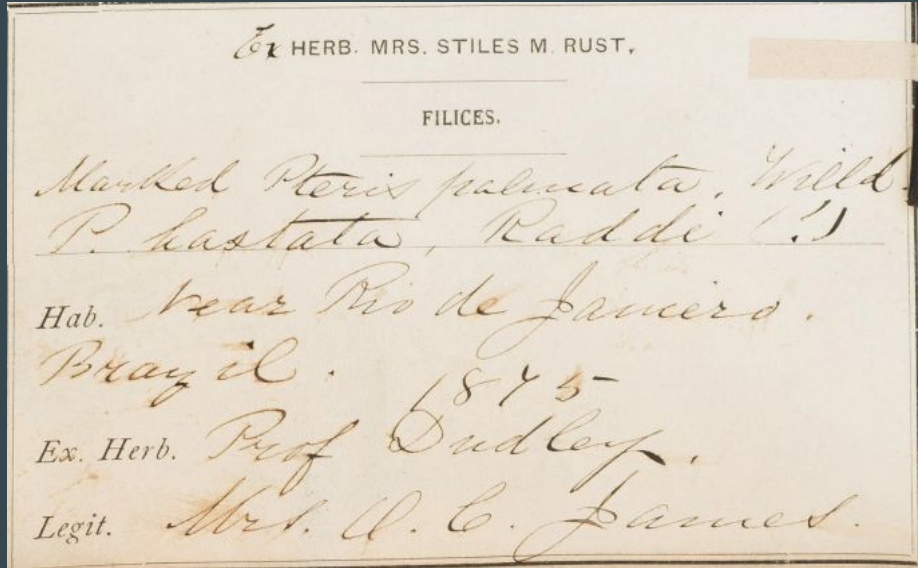 Ex HERB. MRS. STILES M. RUST.
FILICES.
Marked Pteris palmata, Willd.
P. hastata, Raddi (!)
Hab. Near Rio de Janiero.
Brazil. 1875
Ex. Herb. Prof Dudley.
Legit. Mrs. O. C. James.